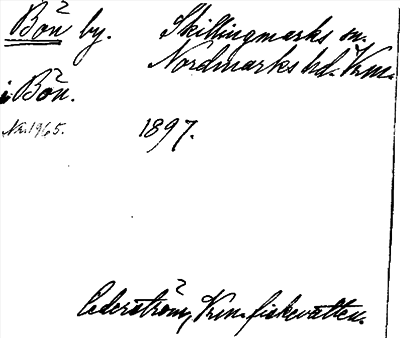 Bön by. Skillingmarks sn.
Nordmarks hd. Vrm.
i Bön.
Nr. 1965. 1897.
Cederström, Vrm. fiskevatten.